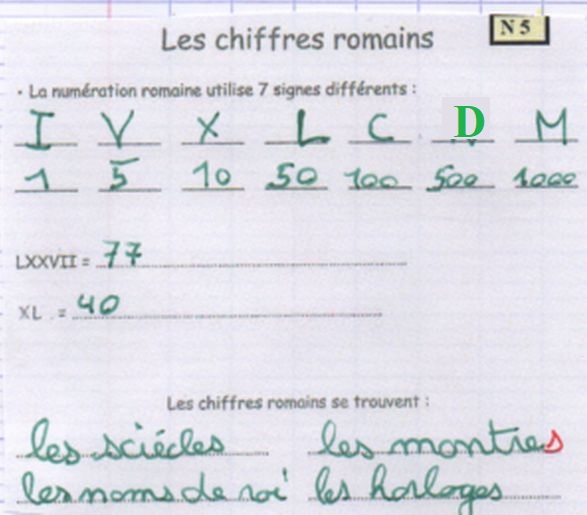 Les chiffres romains N 5
· La numération romaine utilise 7 signes différents :
I V X L C D M
1 5 10 50 100 500 1000
LXXVII = 77
XL . = 40
Les chiffres romains se trouvent :
les sciécles les montres
les noms de roi les horloges